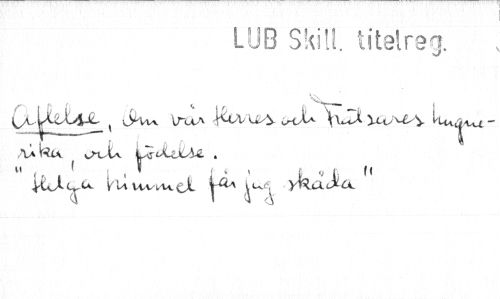 LUB Skill. titelreg.
Aflelse, Om vår Herres och Frälsares hugne-
rika, och födelse.
"Helga himmel får jag skåda"